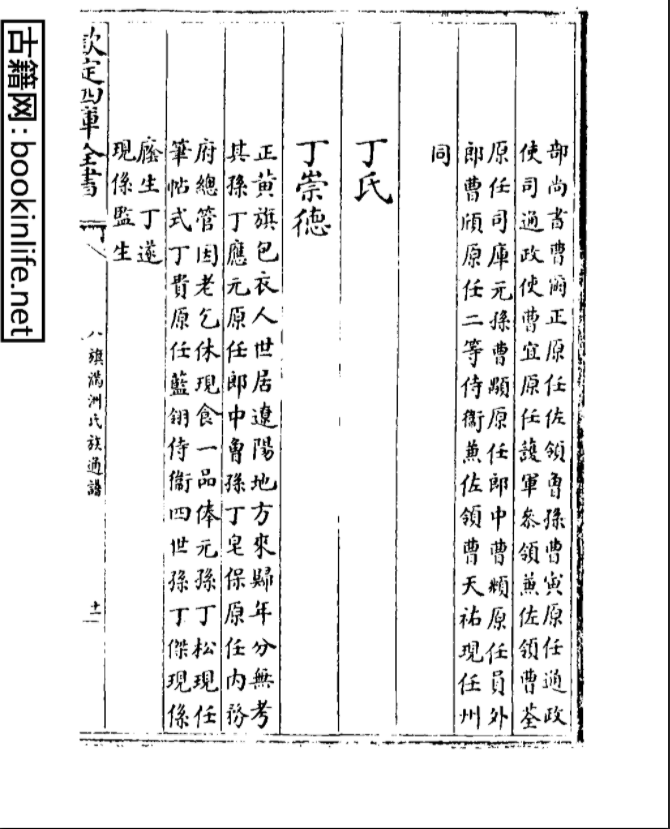 部尚書曹爾正原任佐領曽孫曹寅原任通政
使司通政使曹宜原任護軍參領兼佐領曹荃
原任司庫元孫曹顒原任郎中曹頫原任員外
郎曹頎原任二等侍衛兼佐領曹天祐現任州
同
丁氏
丁崇德
正黄旗包衣人世居遼陽地方來歸年分無考
其孫丁應元原任郎中曽孫丁皂保原任内務
府總管因老乞休現食一品俸元孫丁松現任
筆帖式丁貴原任藍翎侍衛四世孫丁傑現係
廕生丁遂
現係監生
欽定四庫全書
八旗滿洲氏族通譜
十一
古籍网:bookinlife.net